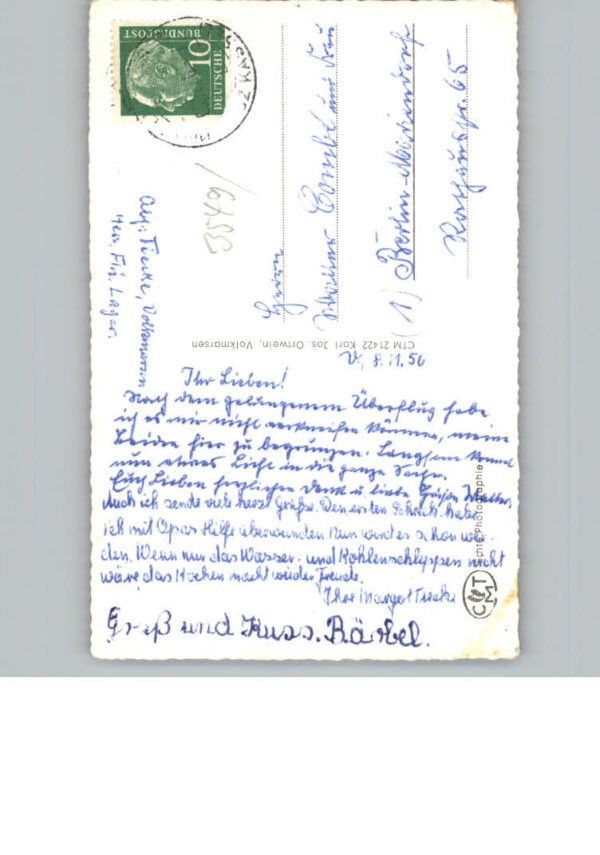 10
DEUTSCHE
BUNDESPOST
Herrn
Walter Combé und Frau
(1) Berlin-Mariendorf
Rathausstr. 65
3549/
Abs.: Tiecke, Volkmarsen
Hess. Fin. Lager.
CTM 21422 Karl Jos. Ortwein, Volkmarsen
V, 8.11.56
Ihr Lieben!
Nach dem gelungenem Überflug habe
ich es mir nicht verkneifen können, meine
Beiden hier zu begrüssen. Langsam kommt
nun etwas Licht in die ganze Sache.
Euch Lieben herzlichen Dank u. liebe Grüße Walter.
Auch ich sende viele herzl. Grüße. Den ersten Schreck habe
ich mit Opas Hilfe überwunden Nun wird es schon wer-
den. Wenn nur das Wasser- und Kohlenschleppen nicht
wäre, das Kochen macht wieder Freude.
Ihre Margot Tiecke
Gruß und Kuss. Bärbel.
CTM
chte Photographie